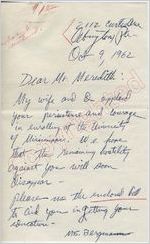 $12
2112 Custer Ave
Abington, Pa
Oct 9, 1962
Dear Mr. Meredith:
My wife and I applaud
your persistence and courage
in enrolling at the University
of Mississippi. We hope
that the remaining hostility
against you will soon
disappear —
please use the enclosed bill
to aid you in getting your
education.
Mr. Bergmann